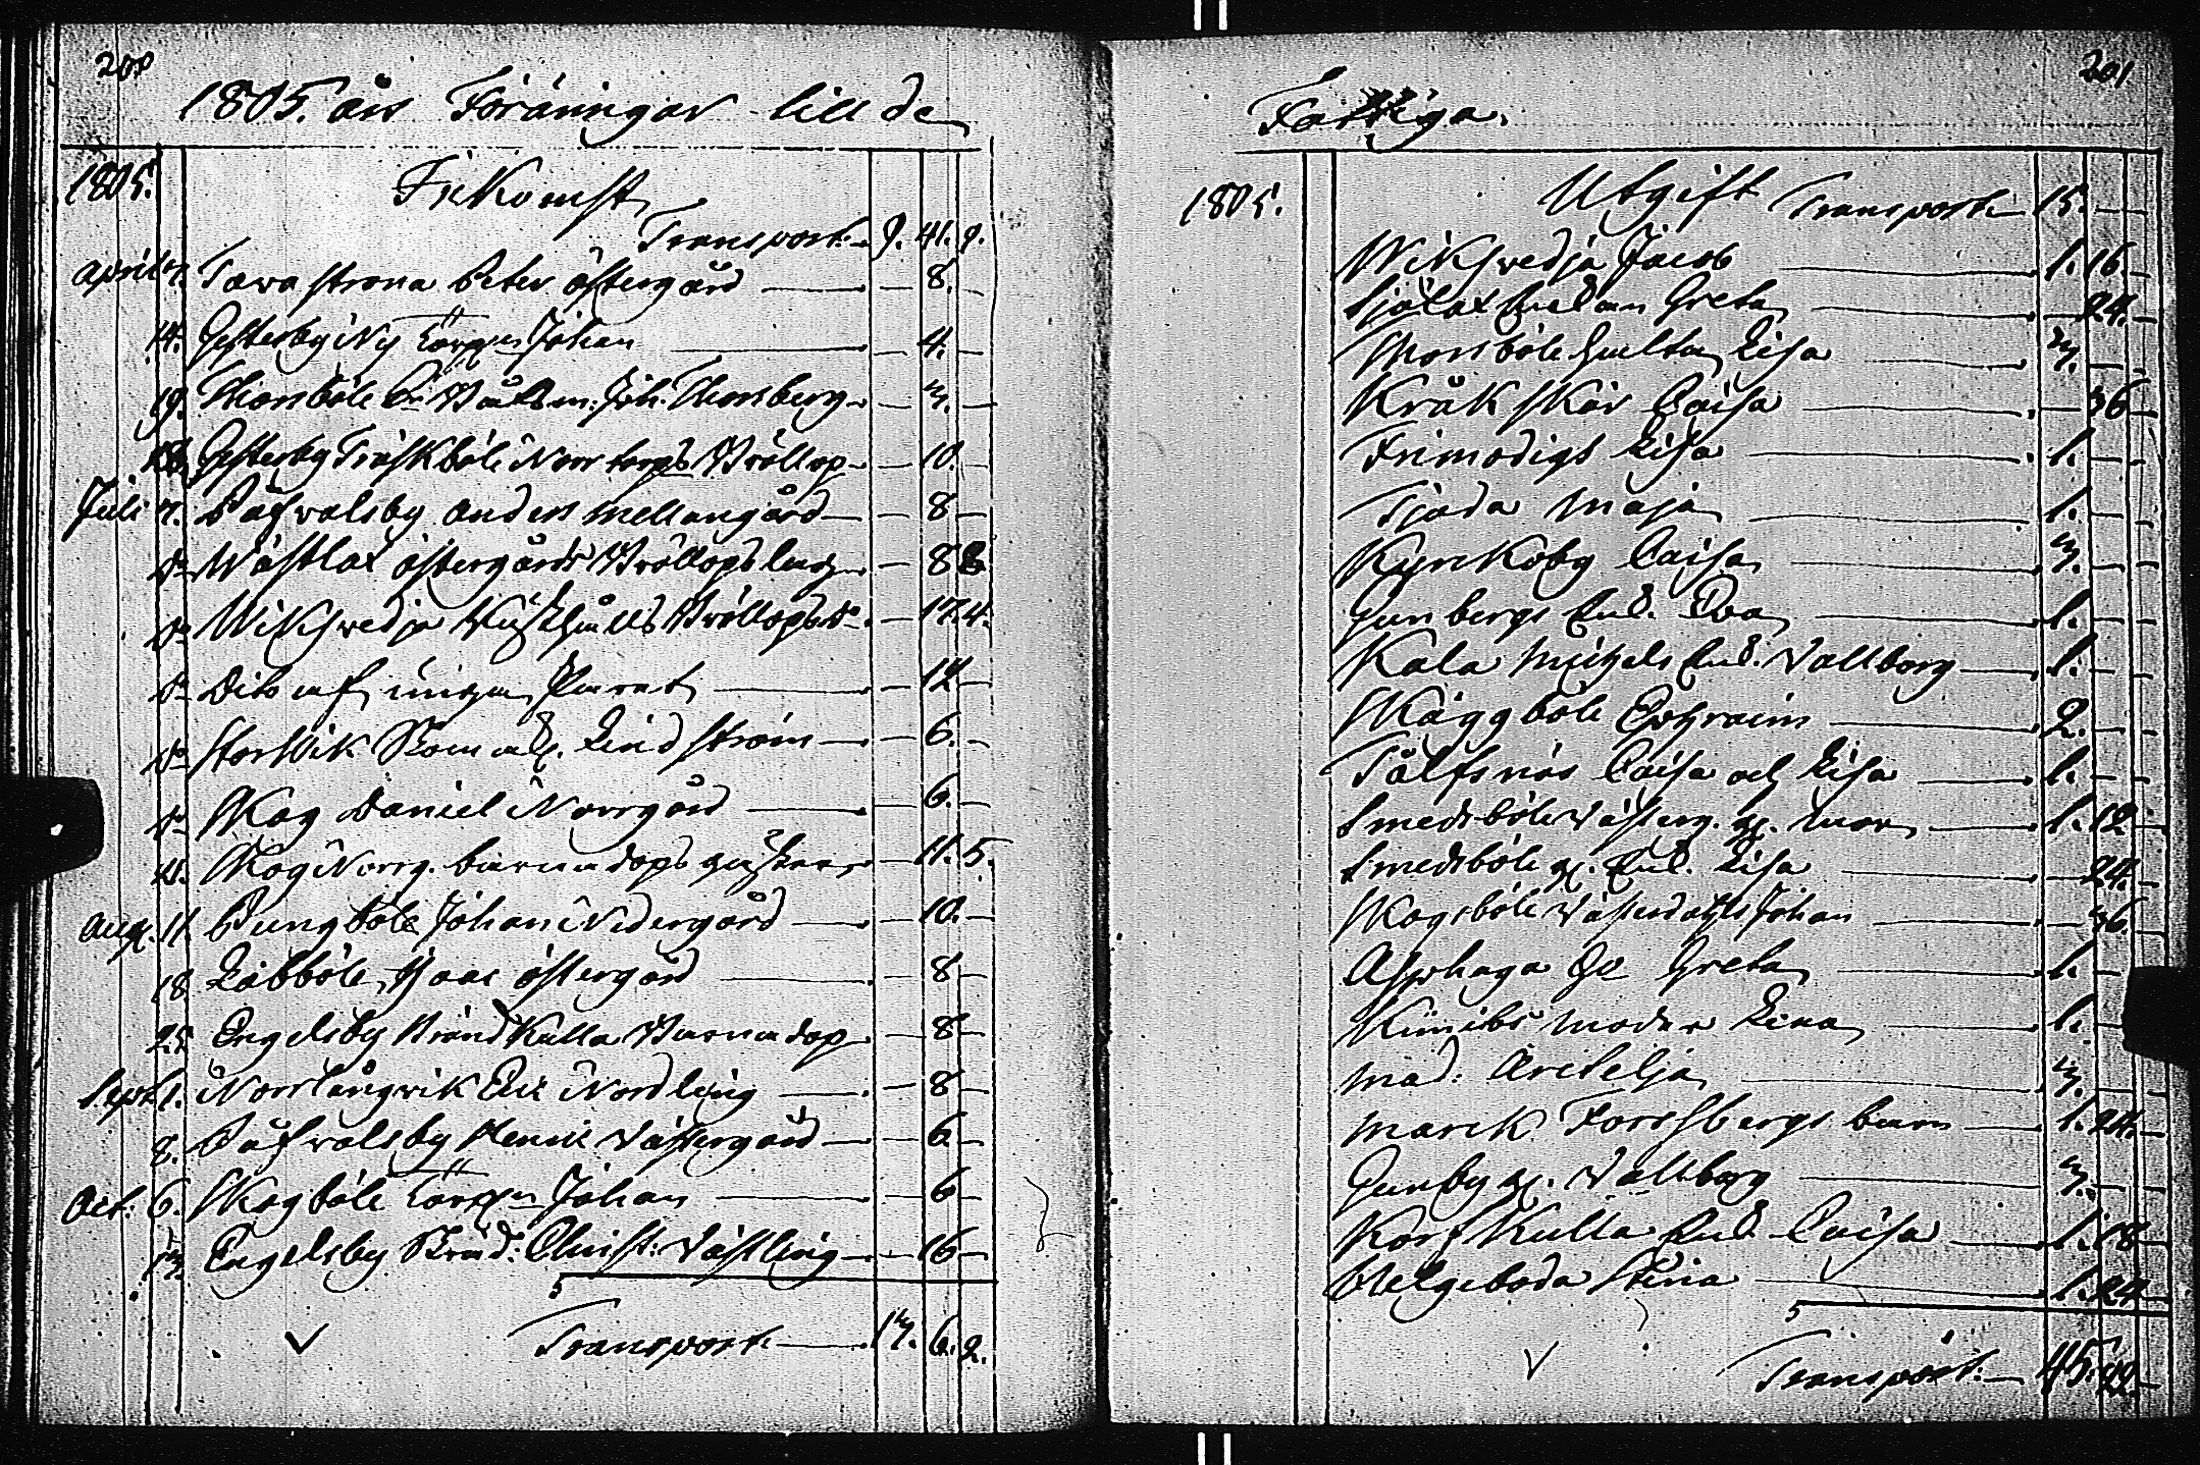 200
1805. års Föräningar till de
1805. Inkomst
Transport 9. 41. 9.
April 7. Tavastrona Peter östergård — 8. —
14. Gesterby Nÿ Torpn Johan — 4. —
19. Thorsböle Johs. Thorsberg — 3. —
Gesterby Träskböle Norrtorps Bröllop — 10. —
Juli 7. Båfvalsby Anders Mellangård — 8 —
do Wästlax östergårds Bröllops 8 8
do Wiksvedja Bröllops do — 17. 4.
do Dito af unga Paret — 12 —
do Storwik Lindström — 6. —
do Skog Daniel Norrgård — 6. —
Skog Norrg. barnadops — 11. 5.
Aug. 11. Pungböle Johan Nedergård — 10. —
18 Labböle Isaac östergård — 8 —
25 Engelsby Brändkulla Barnadop — 8 —
Sept. 1. Norrlångvik Eric Nordling — 8 —
8. Båfvalsby Henric Västergård — 6 —
Oct: 6. Skogböle Torpn Johan — 6 —
13. Engelsby Skräd: Christ: Västling — 16 —
Transport 13. 6. 2.
201
Fattiga.
1805. Utgift Transport 15. —
Wiksvedja Jacob 1. 16. —
Sjölax Greta — 24. —
Norsböle Lisa 3. — —
Kråkskär Caisa — 36 —
Frimodigs Lisa 1. — —
Tjäda Maja 1. — —
Kyrkoby Caisa 3. — —
Gunbergs Enk. Eva 1. — —
Kala Michels Enk. Vallborg 1. — —
Skäggböle Ephraim 2. — —
Tålfsnäs Caisa och Lisa 1. — —
Smedsböle västerg. gl. mor 1. 12 —
Smedsböle gl. Enk. Lisa — 24. —
Skogsböle Johan — 36. —
Asphaga Greta 1. —
Moder Lena 1. —
Mad: 3. — —
Marck Forssbergs barn 1. 24. —
Gunby gl. Vallborg 3. — —
Korskulla Enk. Caisa 1. 18 —
Helgeboda Stina 1. 24
Transport. 45. 22. —